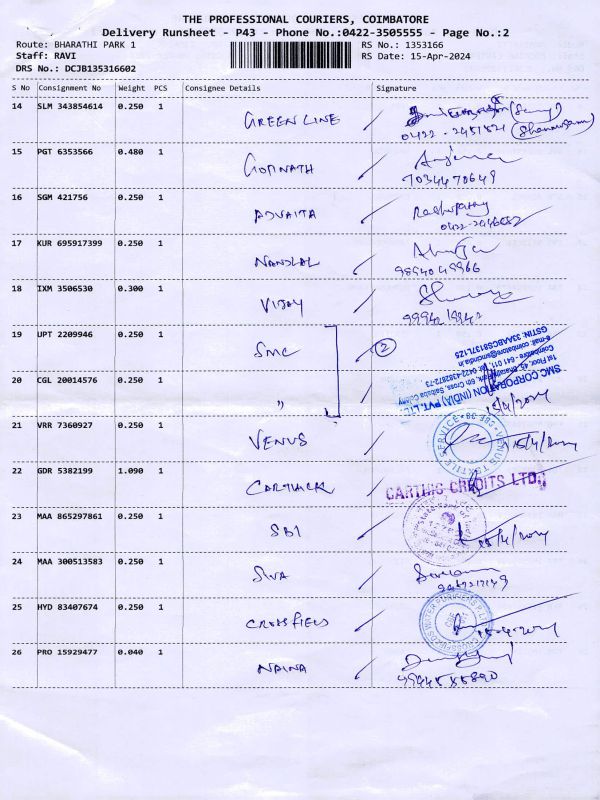 THE PROFESSIONAL COURIERS, COIMBATORE
Delivery Runsheet - P43 - Phone No.:0422-3505555 - Page No.:2
Route: BHARATHI PARK 1
RS No.: 1353166
Staff: RAVI
RS Date: 15-Apr-2024
DRS No.: DCJB135316602
S No Consignment No Weight PCS Consignee Details Signature
14 SLM 343854614 0.250 1 GREEN LINE
0422 - 2451821 (Shanmugam)
15 PGT 6353566 0.480 1 GOPINATH
7034470649
16 SGM 421756 0.250 1 ADVAITA
17 KUR 695917399 0.250 1 NANDLAL
9894049966
18 IXM 3506530 0.300 1 VIJAY
19 UPT 2209946 0.250 1 SMC 2
SMC CORPORATION (INDIA) PVT. LTD
1st Floor, 45, Bharathi Park, 6th Cross, Saibaba Colony
Coimbatore - 641 011. Tel: 0422-4382872-73
e-mail: coimbatore@smcindia.in
GSTIN: 33AABCS8137L1Z5
20 CGL 20014576 0.250 1 "
15/4/2024
21 VRR 7360927 0.250 1 VENUS 15/4/2024
VENUS TEXTILE SERVICE
22 GDR 5382199 1.090 1 CARTHICK
CARTHIC CREDITS LTD.,
23 MAA 865297861 0.250 1 SBI 15/4/2024
24 MAA 300513583 0.250 1 SIVA
25 HYD 83407674 0.250 1 CROSSFIELDS 15-4-2024
CROSSFIELDS WATER PURIFIERS P. LTD
26 PRO 15929477 0.040 1 NAINA
9994585890